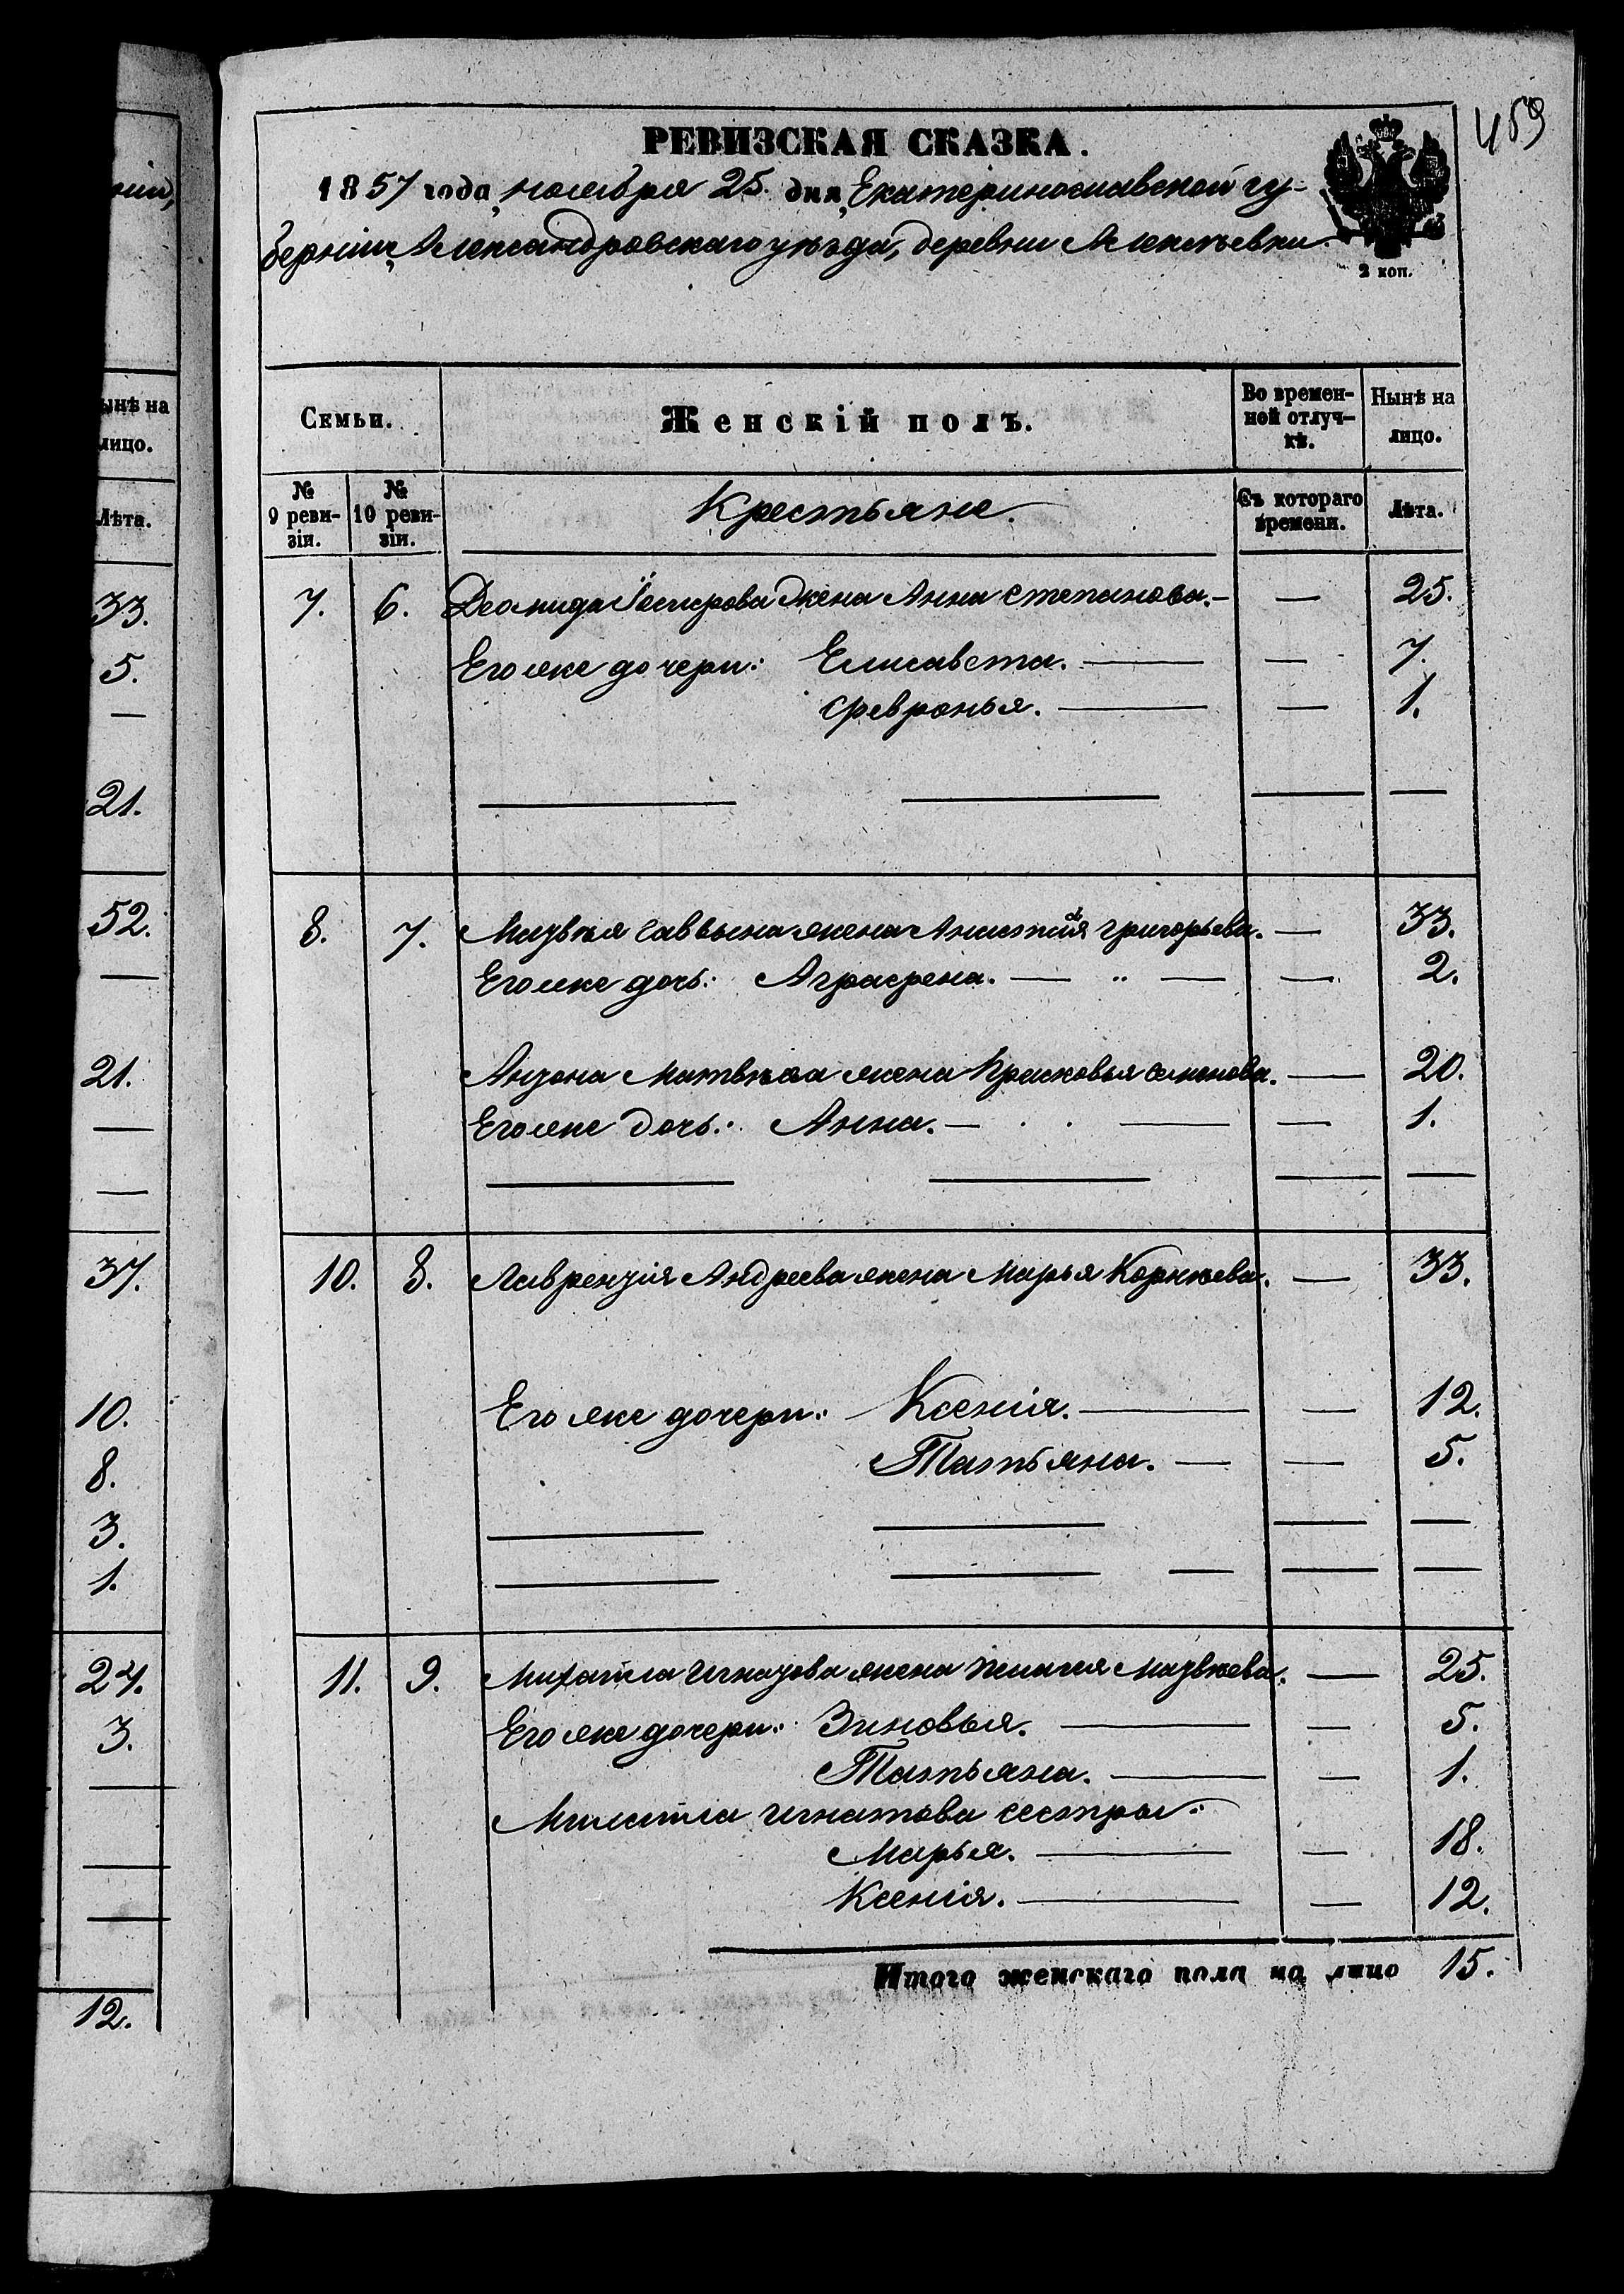 459
РЕВИЗСКАЯ СКАЗКА.
1857 года, ноября 25. дня, Екатеринославской гу-
берніи, Александровскаго уѣзда, деревни Алексѣевки.
2 коп.
ніи,
ынѣ на
лицо.
Лѣта.
33.
5.
—
21.
52.
—
21.
—
—
37.
10.
8.
3.
1.
24.
3.
12.
Семьи.
Женскій полъ.
Во времен-
ной отлуч-
кѣ.
Нынѣ на
лицо.
№
9 реви-
зіи.
№
10 реви-
зіи.
Крестьяне.
Съ котораго
времени.
Лѣта.
7. 6. жена Анна Степанова. — — 25.
Его же дочери: Елисавета. — — 7.
Февронья. — — 1.
8. 7. Саввына жена Григорьева. — 33.
Его же дочь: Аграфена. — " — — 2.
Матвѣева жена Прасковья Семенова. — 20.
Его же дочь: Анна. — — — 1.
10. 8. Лаврентія Андреева жена Марья Корнѣева. — 33.
Его же дочери: Ксенія. — — 12.
Татьяна. — — 5.
11. 9. Михайла Игнатова жена Матвѣева. — 25.
Его же дочери: Зиновья. — — 5.
Татьяна. — — 1.
Михайла Игнатова сестры:
Марья. — — 18.
Ксенія. — — 12.
Итого женскаго пола на лицо 15.